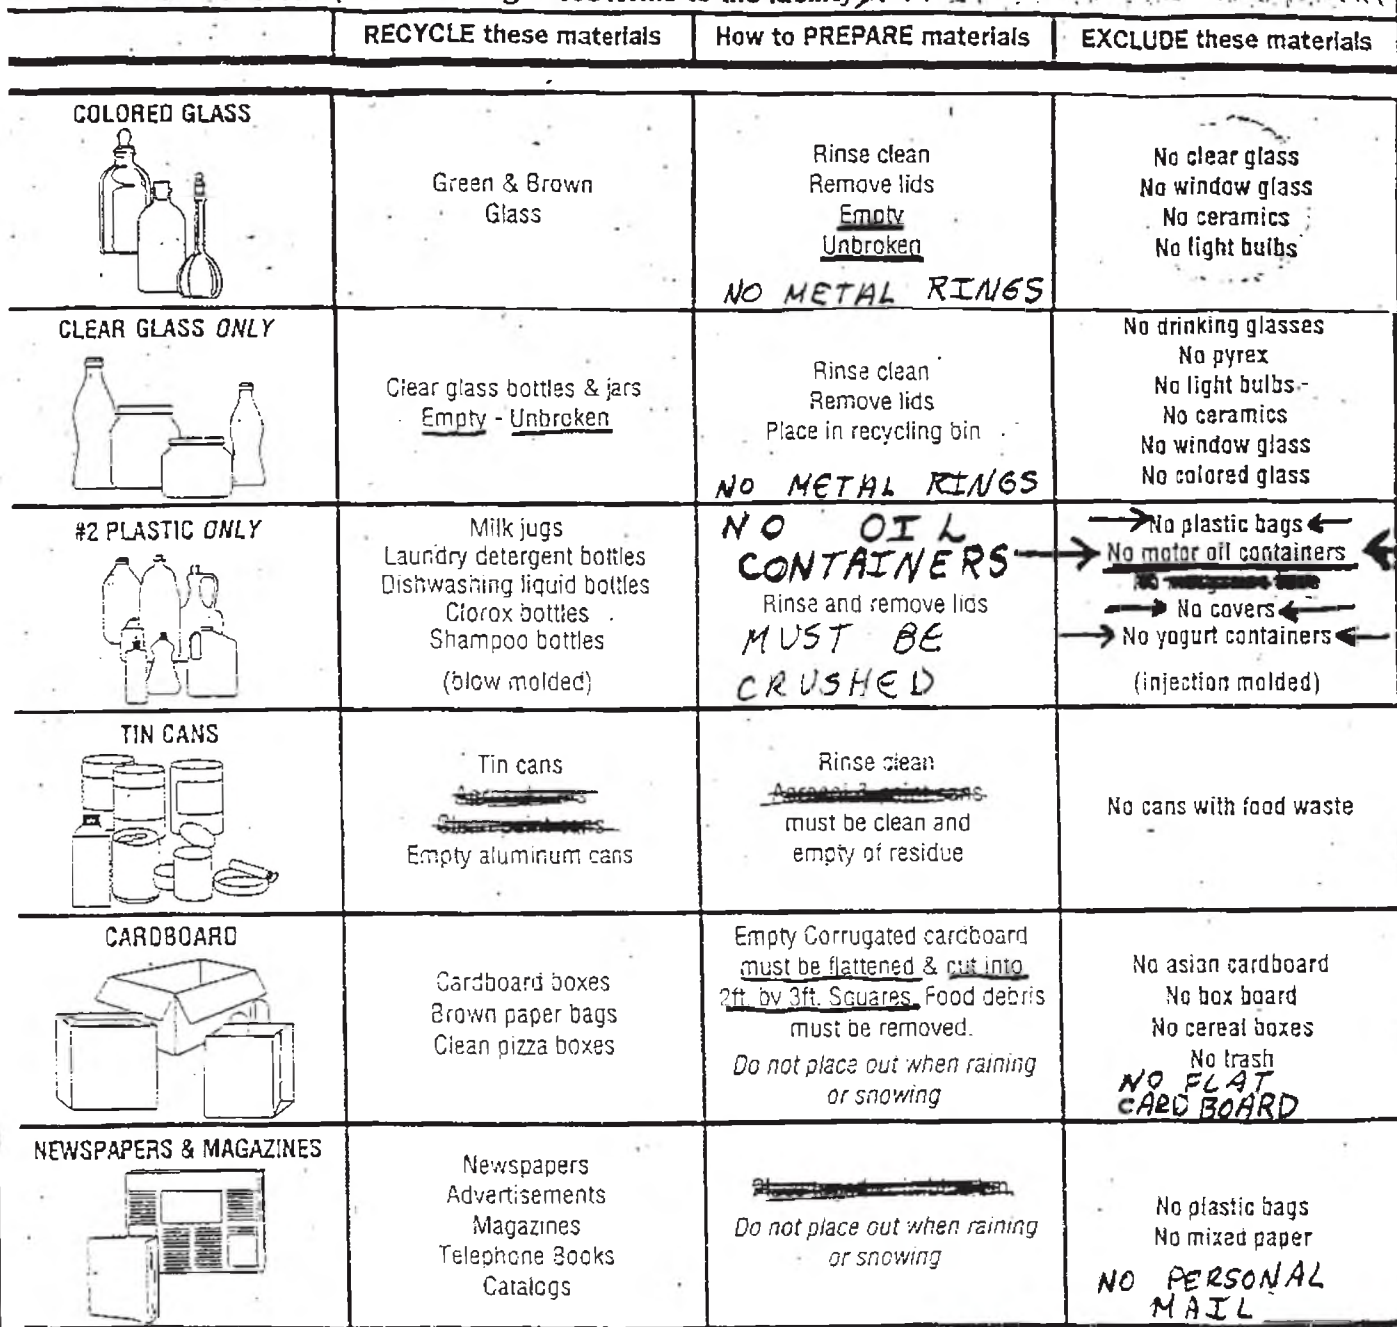 RECYCLE these materials
How to PREPARE materials
EXCLUDE these materials
COLORED GLASS
Green & Brown
Glass
Rinse clean
Remove lids
Empty
Unbroken
NO METAL RINGS
No clear glass
No window glass
No ceramics
No light bulbs
CLEAR GLASS ONLY
Clear glass bottles & jars
Empty - Unbroken
Rinse clean
Remove lids
Place in recycling bin
NO METAL RINGS
No drinking glasses
No pyrex
No light bulbs
No ceramics
No window glass
No colored glass
#2 PLASTIC ONLY
Milk jugs
Laundry detergent bottles
Dishwashing liquid bottles
Clorox bottles
Shampoo bottles
(blow molded)
NO OIL
CONTAINERS
Rinse and remove lids
MUST BE
CRUSHED
No plastic bags
No motor oil containers
No covers
No yogurt containers
(injection molded)
TIN CANS
Tin cans
Empty aluminum cans
Rinse clean
must be clean and
empty of residue
No cans with food waste
CARDBOARD
Cardboard boxes
Brown paper bags
Clean pizza boxes
Empty Corrugated cardboard
must be flattened & cut into
2ft. by 3ft. Squares. Food debris
must be removed.
Do not place out when raining
or snowing
No asian cardboard
No box board
No cereal boxes
No trash
NO FLAT
CARDBOARD
NEWSPAPERS & MAGAZINES
Newspapers
Advertisements
Magazines
Telephone Books
Catalogs
Do not place out when raining
or snowing
No plastic bags
No mixed paper
NO PERSONAL
MAIL